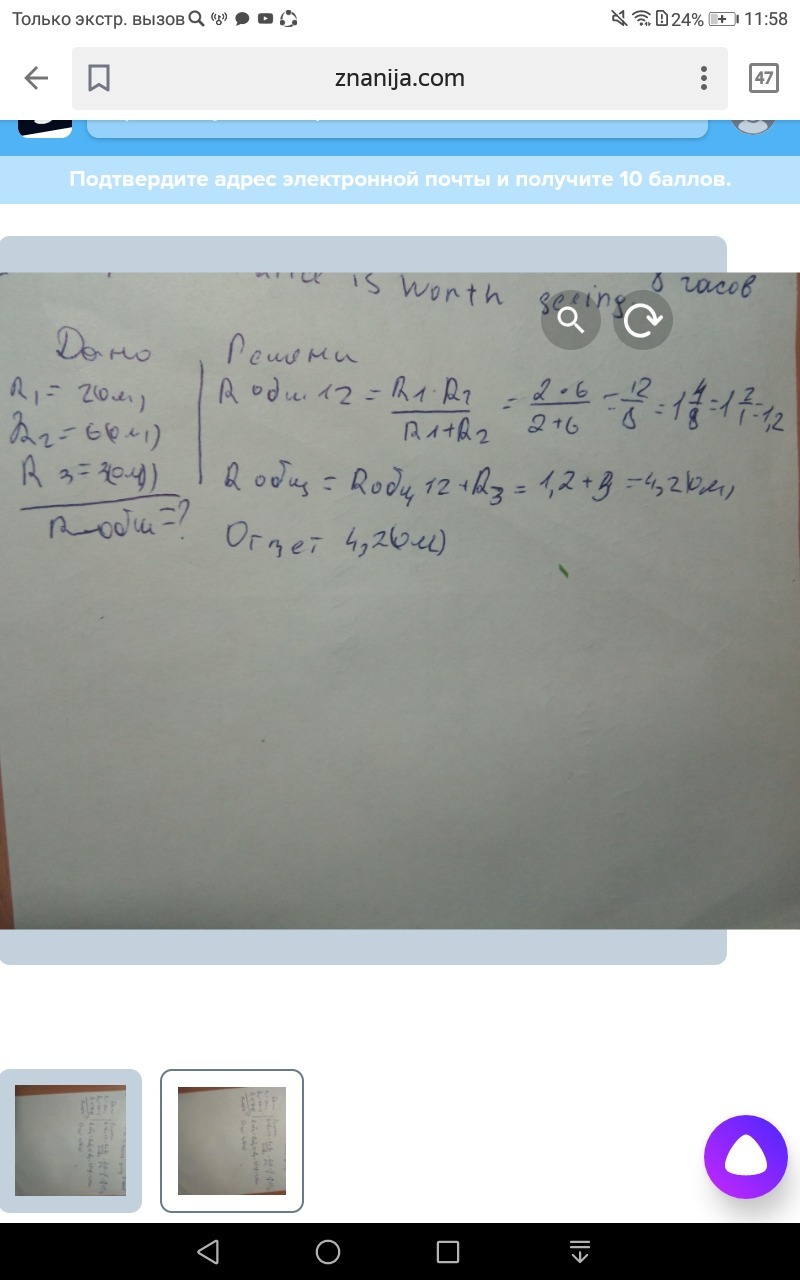 Только экстр. вызов 24% 11:58
znanija.com 47
Подтвердите адрес электронной почты и получите 10 баллов.
is worth seeing. 8 часов
Дано Решени
R1 = 2(ом) R общ 12 = R1·R2 / R1+R2 = 2·6 / 2+6 = 12/8 = 1 4/8 = 1 2/1 = 1,2
R2 = 6(ом)
R3 = 3(ом) R общ = Rобщ 12+R3 = 1,2+3 = 4,2(ом)
R общ = ?
Ответ 4,2(ом)